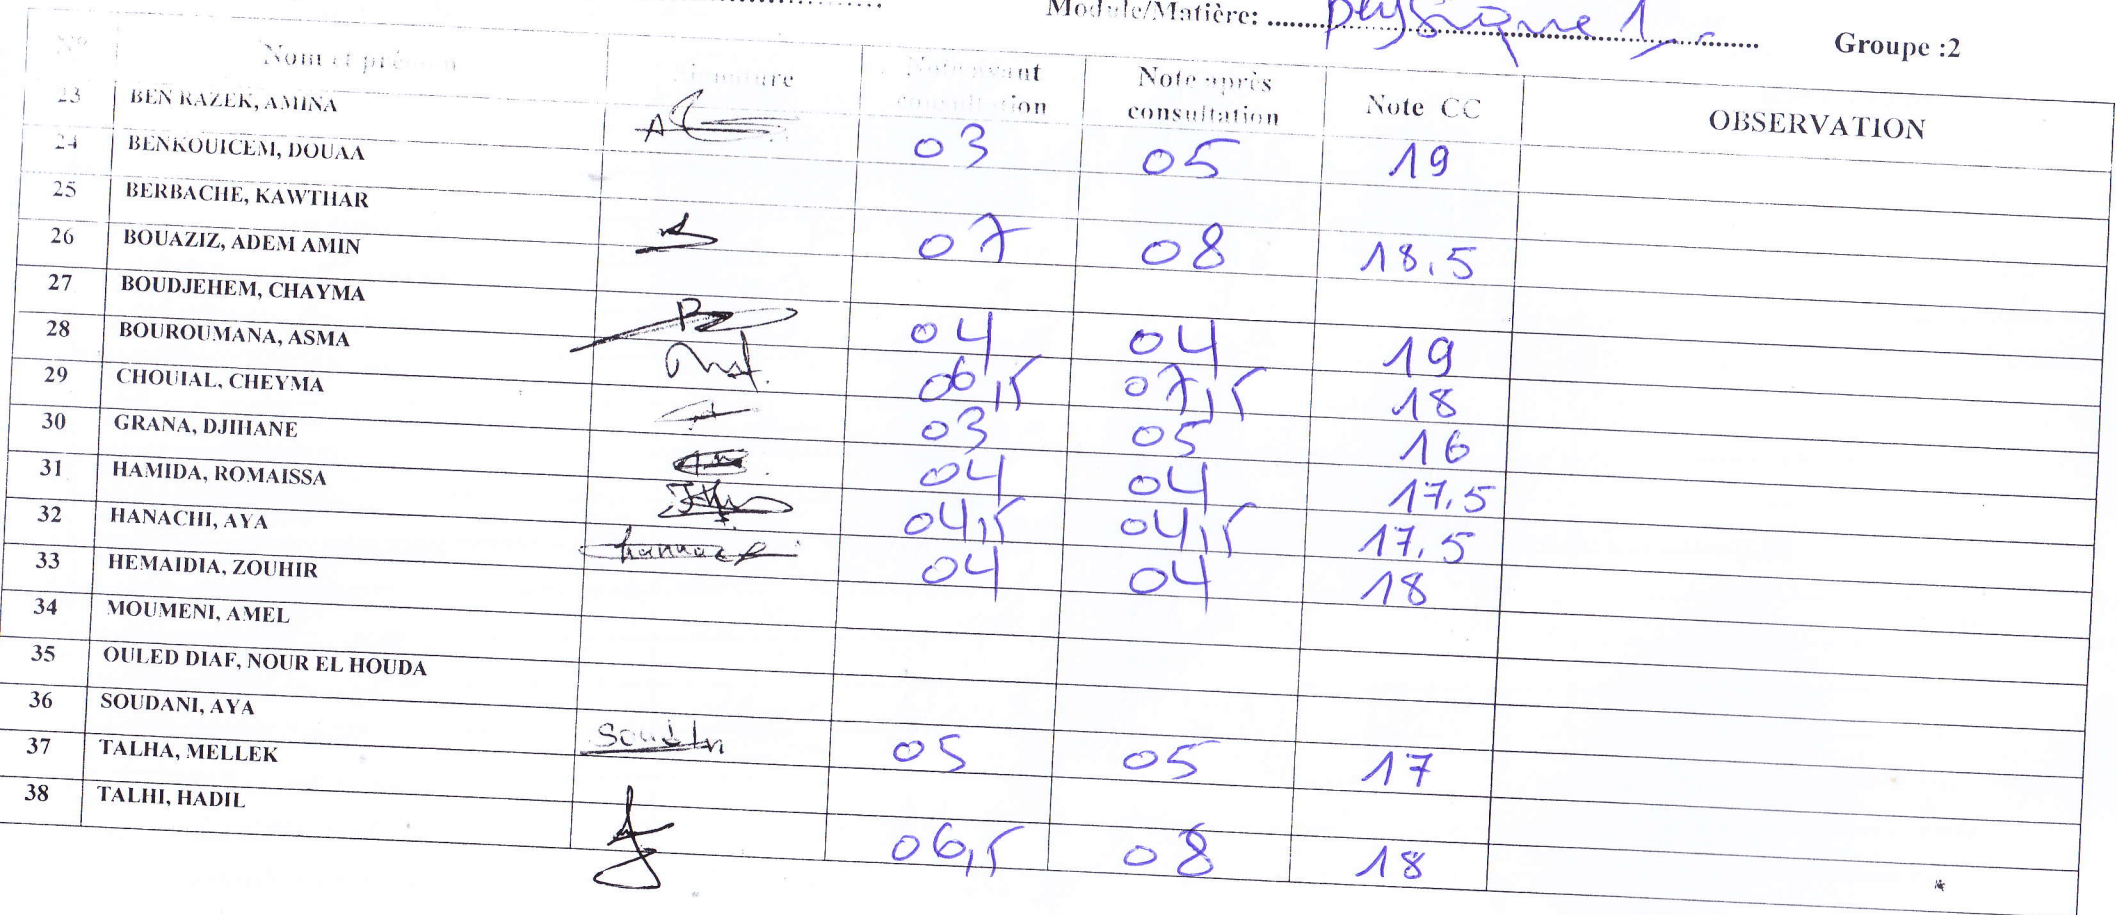 Module/Matière: physique 1 Groupe :2
N° Nom et prénom Signature Note avant consultation Note après consultation Note CC OBSERVATION
23 BEN RAZEK, AMINA 03 05 19
24 BENKOUICEM, DOUAA
25 BERBACHE, KAWTHAR 07 08 18.5
26 BOUAZIZ, ADEM AMIN
27 BOUDJEHEM, CHAYMA 04 04 19
28 BOUROUMANA, ASMA 06,5 07,5 18
29 CHOUIAL, CHEYMA 03 05 16
30 GRANA, DJIHANE 04 04 17.5
31 HAMIDA, ROMAISSA 04,5 04,5 17.5
32 HANACHI, AYA 04 04 18
33 HEMAIDIA, ZOUHIR
34 MOUMENI, AMEL
35 OULED DIAF, NOUR EL HOUDA
36 SOUDANI, AYA 05 05 17
37 TALHA, MELLEK
38 TALHI, HADIL 06,5 08 18